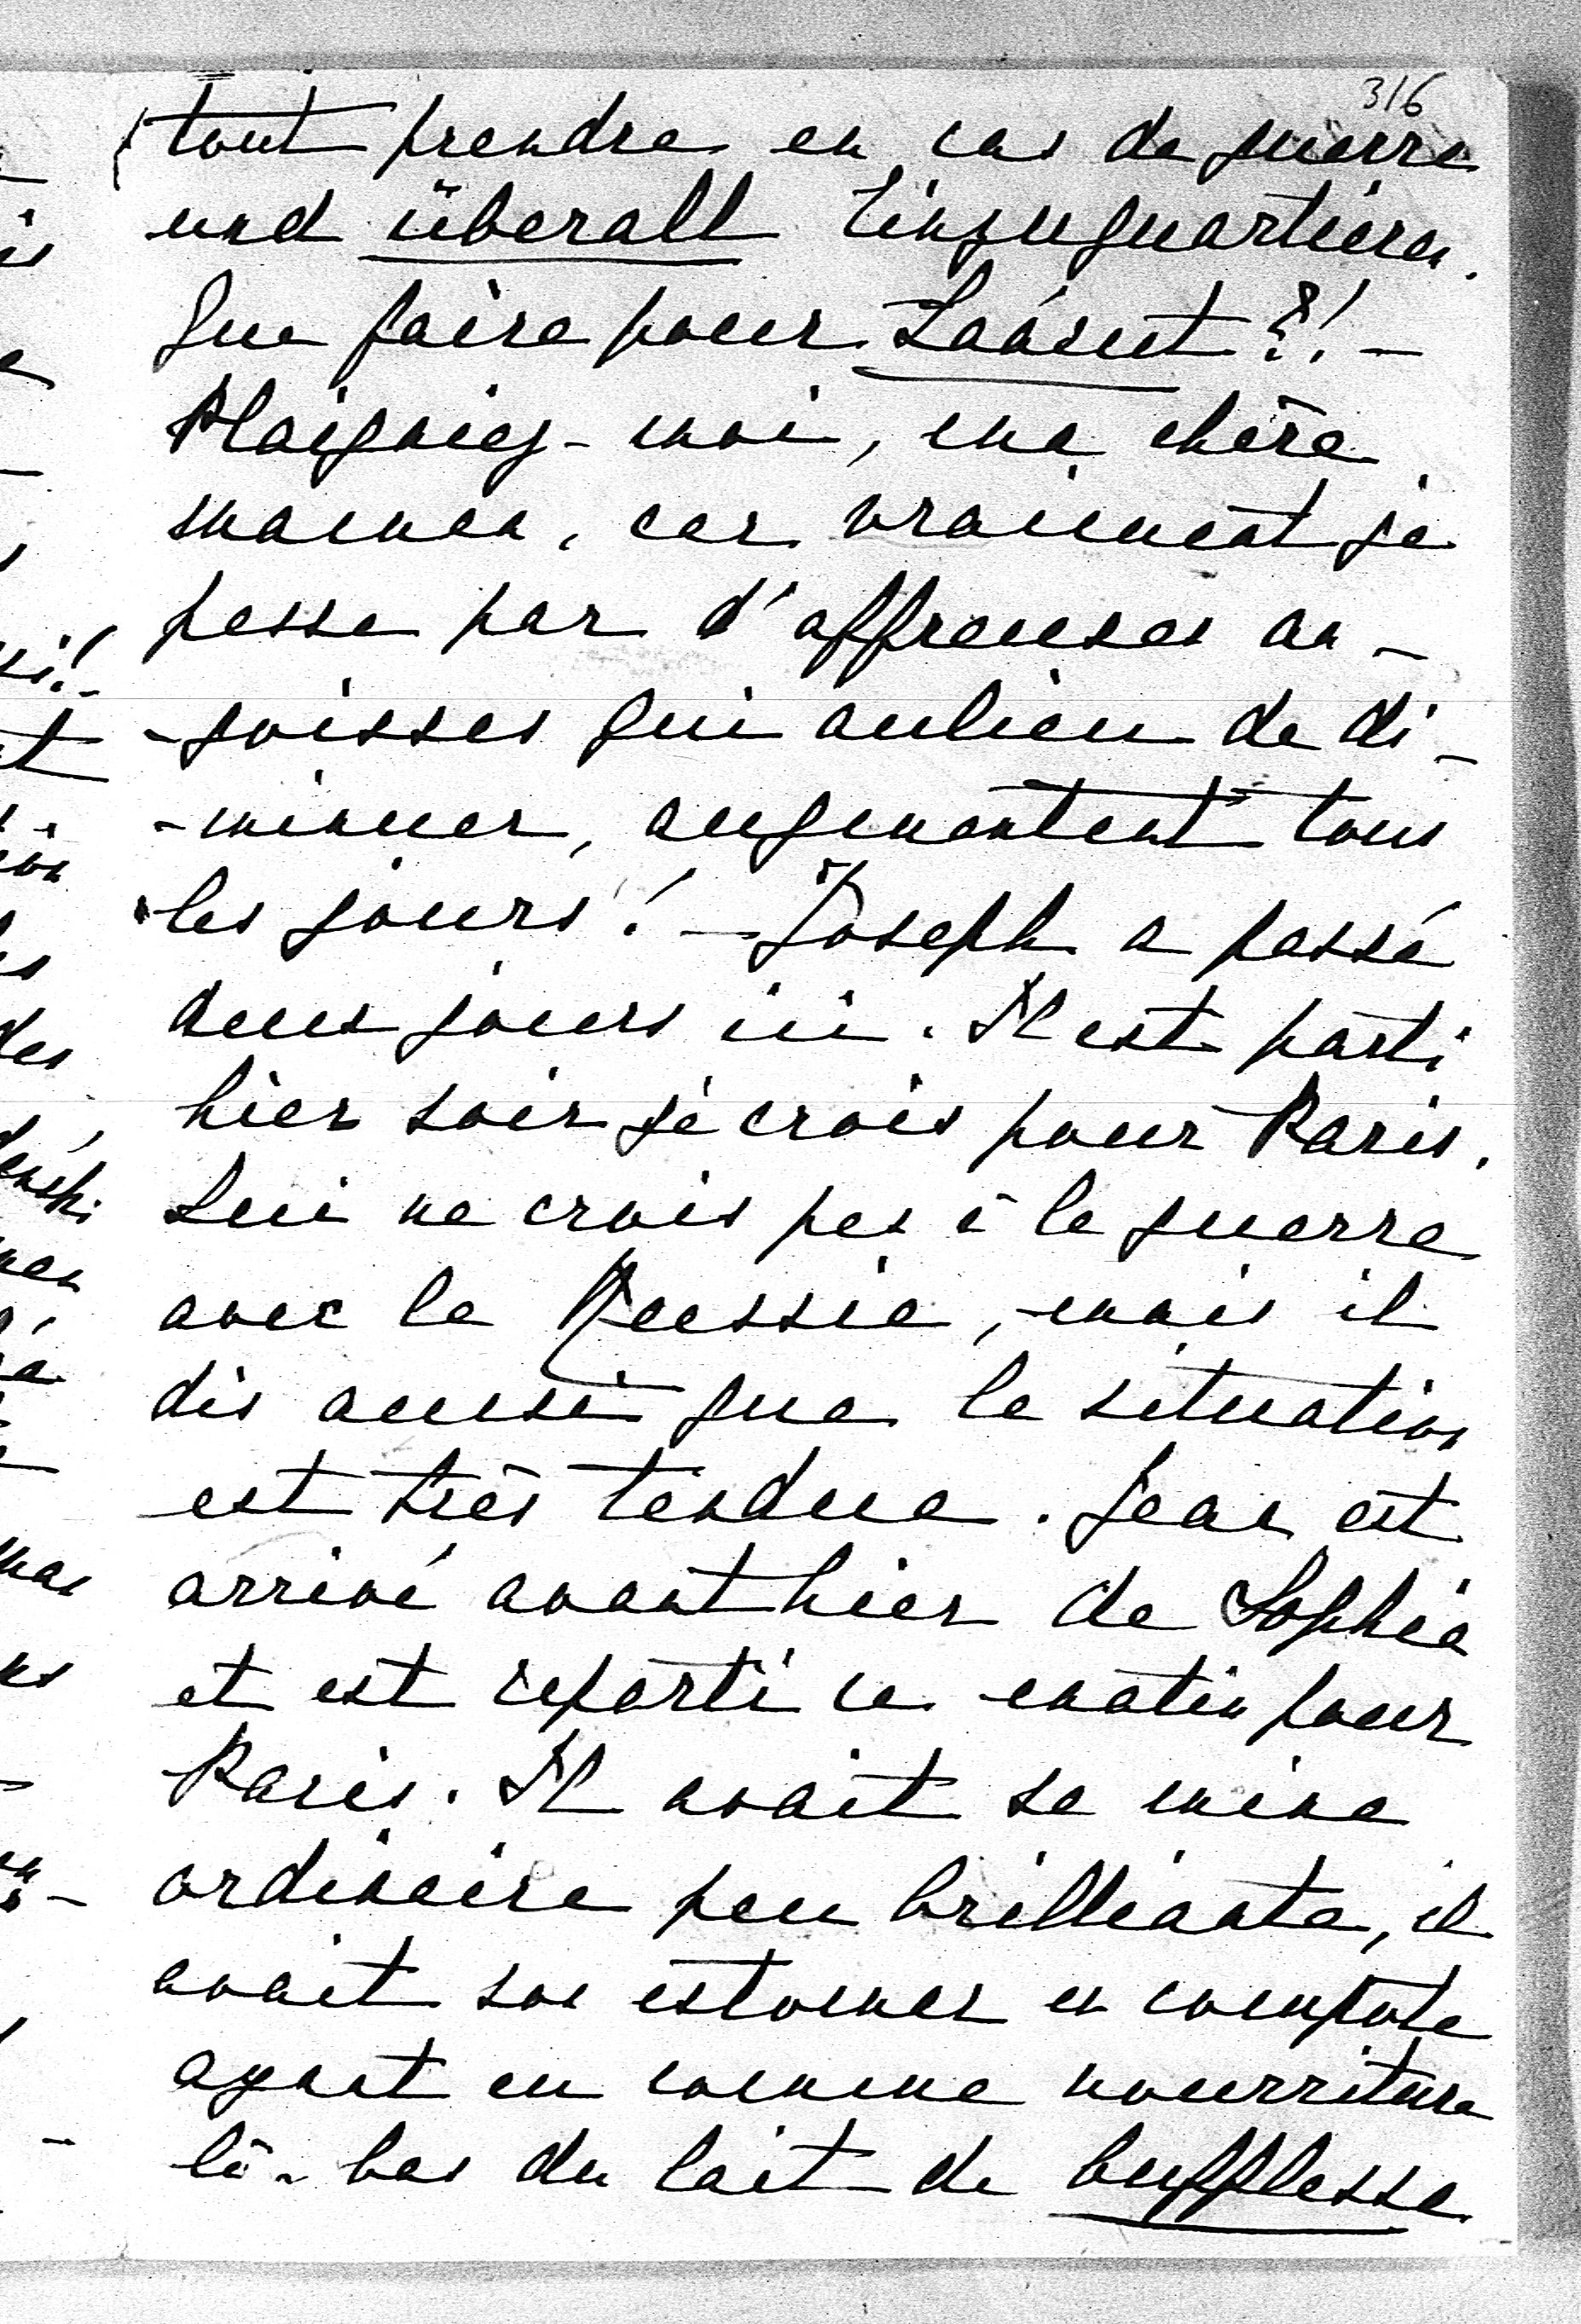 316
tout prendre en cas de guerre
und überall Einzuquartieren.
Que faire pour Łańcut ?! –
Plaignez-moi, ma chère
maman, car vraiment je
passe par d'affreuses an-
-goisses qui aulieu de di-
-minuer, augmentent tous
les jours ! – Joseph a passé
deux jours ici. Il est parti
hier soir je crois pour Paris.
Lui ne crois pas à la guerre
avec la Russie, mais il
dis aussi que la situation
est très tendue. Jean est
arrivé avant hier de Sophia
et est reparti ce matin pour
Paris. Il avait sa mine
ordinaire peu brilliante, il
avait son estomac en compote
ayant eu comme nourriture
là-bas du lait de bufflesse